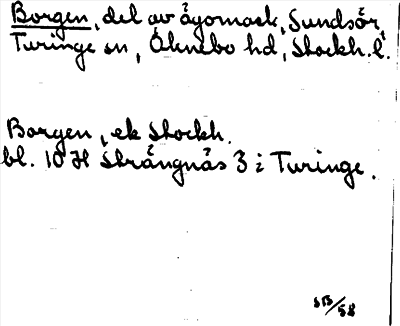 Borgen, del av ägomark, Sundsör,
Turinge sn, Öknebo hd, Stockh. l.
Borgen, ek Stockh.
bl. 10 H Strängnäs 3 i Turinge.
SB/58